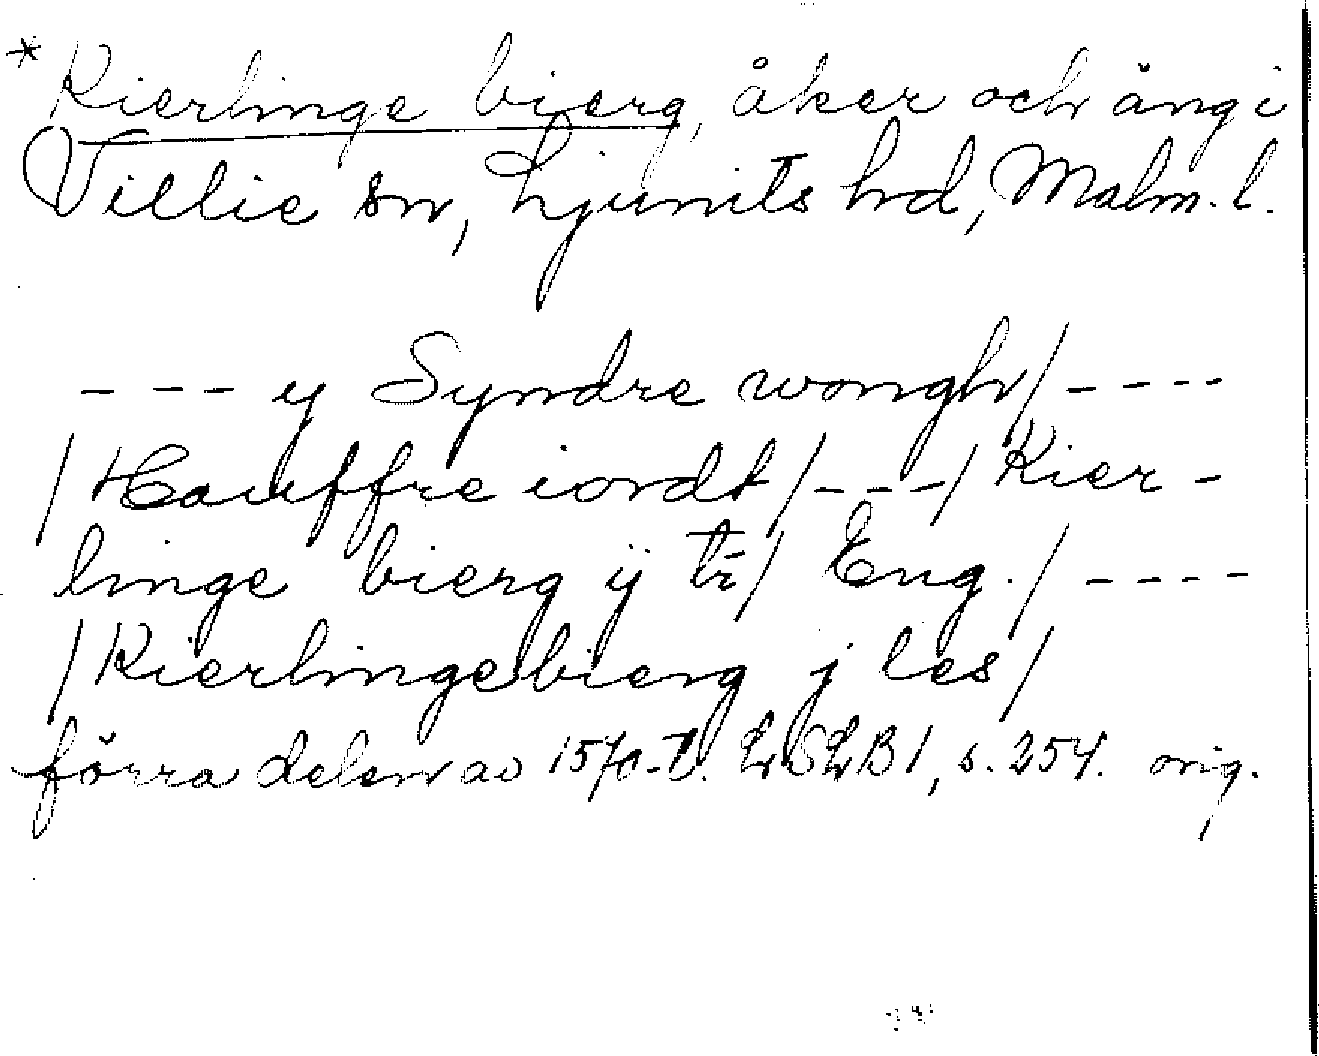 * Kierlinge bierg, åker och äng i
Villie sn, Ljunits hd, Malm. l.
- - - y Syndre wongh/ - - - -
/Hauffre iordt/ - - -/ Kier-
linge bierg ÿ tr/ Eng./ - - - -
/Kierlingebierg j les/
förra delen av 1570-t. LSLB1, s. 254. orig.